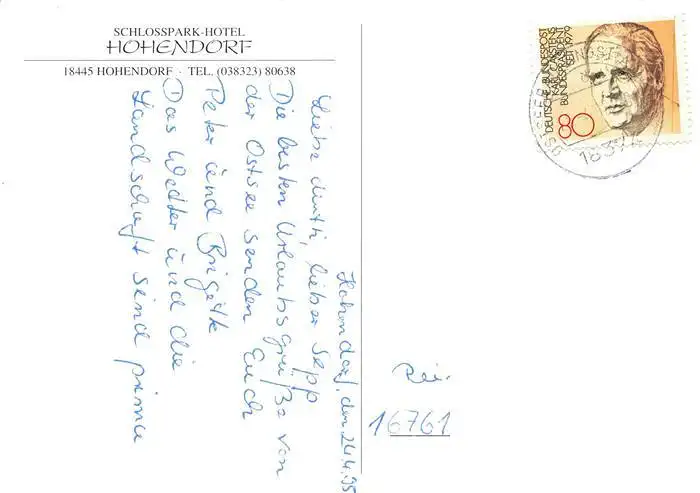 SCHLOSSPARK-HOTEL
HOHENDORF
18445 HOHENDORF · TEL. (038323) 80638
Hohendorf, den 24.4.95
Liebe
lieber Sepp
Die besten Urlaubsgrüße von
der Ostsee senden Euch
Peter und Brigitte
Das Wetter und die
Landschaft sind prima
DEUTSCHE BUNDESPOST
KARL CARSTENS
BUNDESPRÄSIDENT
SEIT 1979
80
OSTSEE
16761